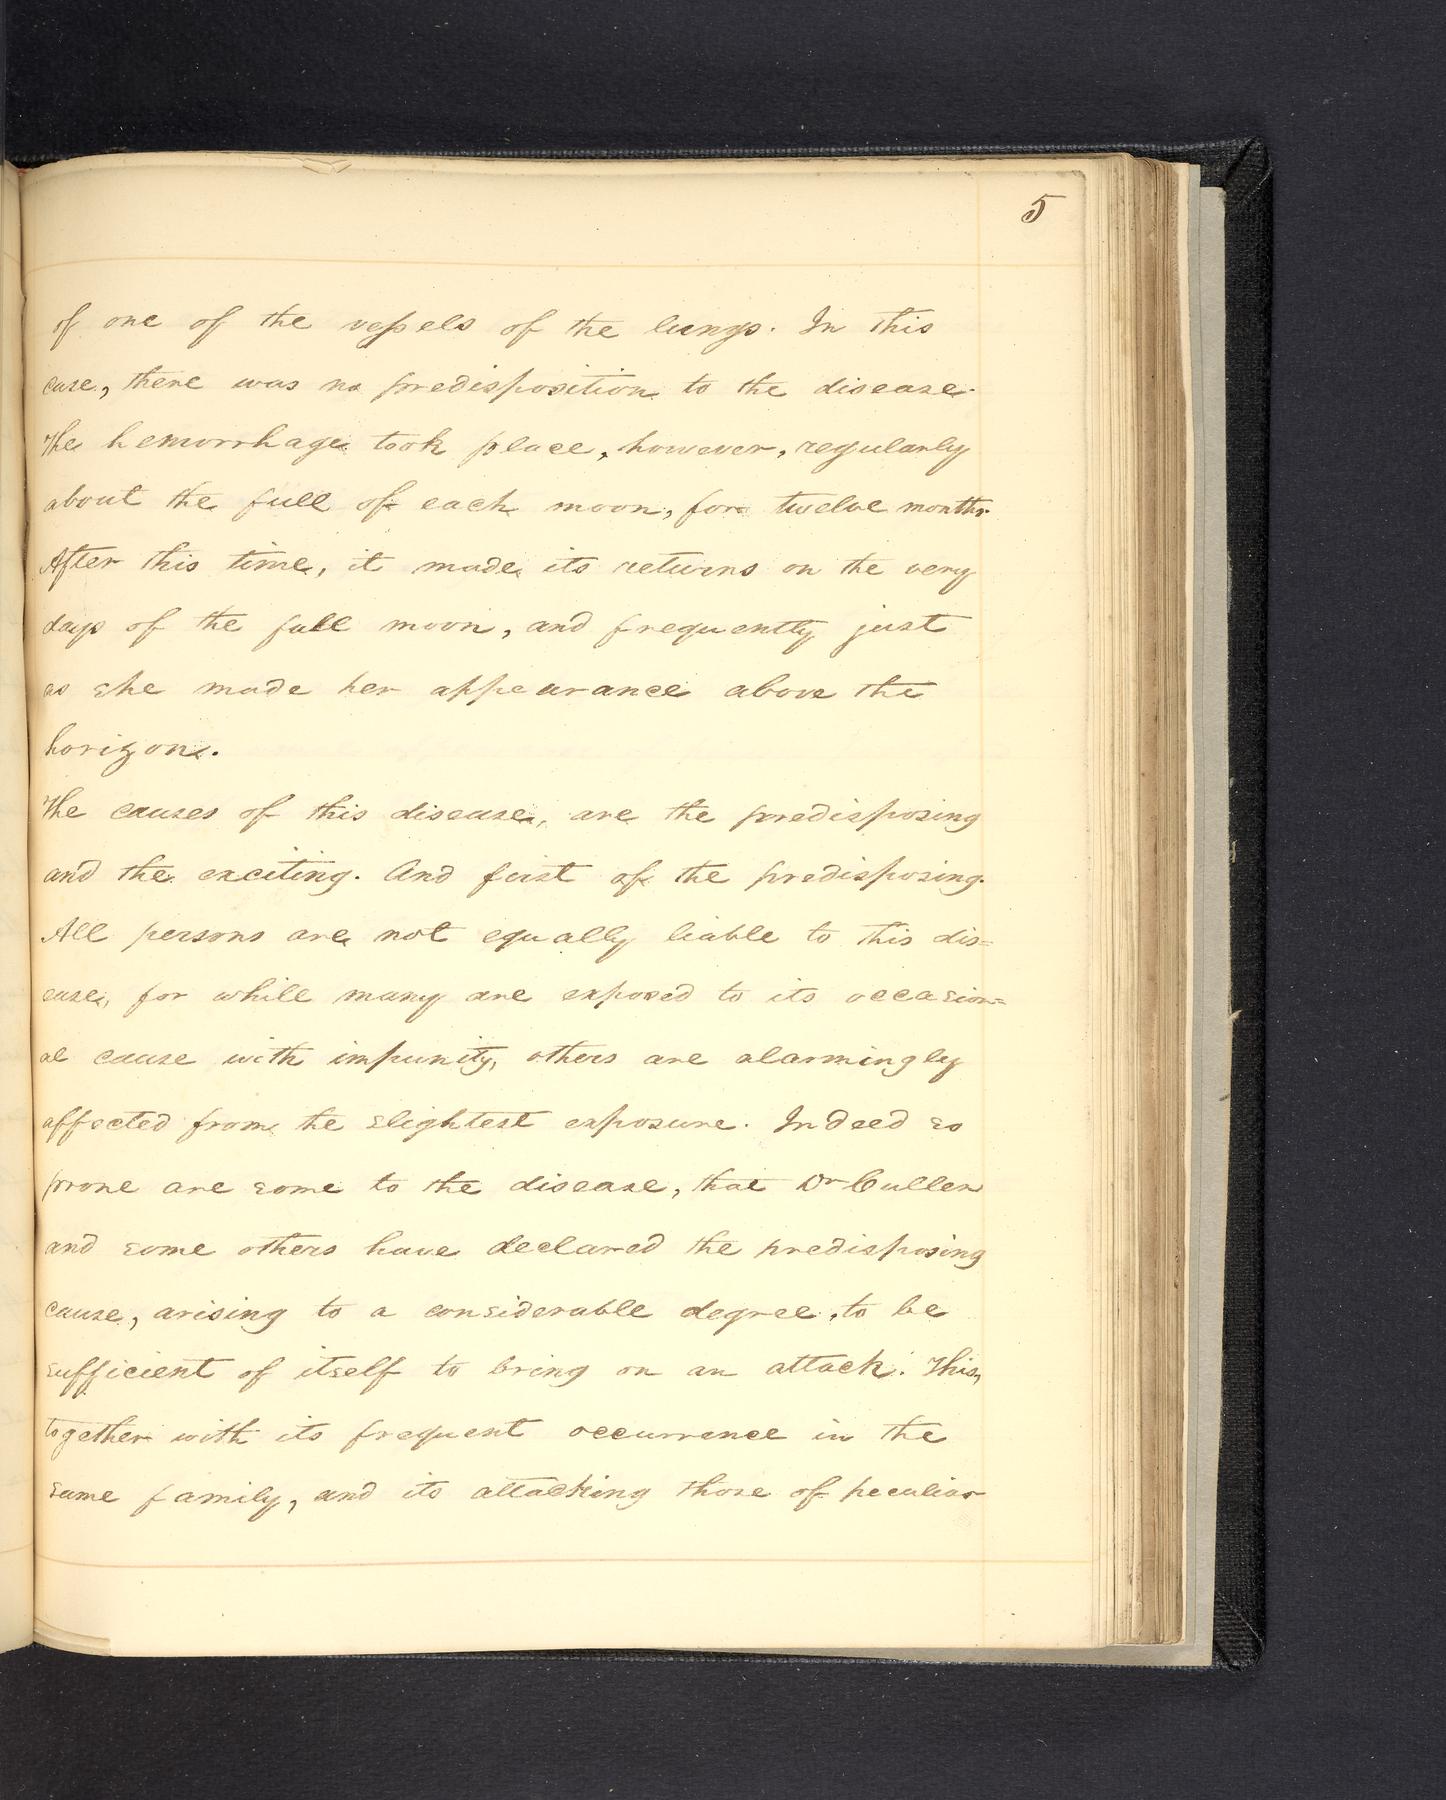 5
of one of the vessels of the lungs. In this
case, there was no predisposition to the disease.
The hemorrhage took place, however, regularly
about the full of each moon, for twelve months.
After this time, it made its returns on the very
days of the full moon, and frequently just
as she made her appearance above the
horizon.
The causes of this disease, are the predisposing
and the exciting. And first of the predisposing.
All persons are not equally liable to this dis=
ease, for while many are exposed to its occasion=
al cause with impunity, others are alarmingly
affected from the slightest exposure. Indeed so
prone are some to the disease, that Dr Cullen
and some others have declared the predisposing
cause, arising to a considerable degree, to be
sufficient of itself to bring on an attack. This,
together with its frequent occurrence in the
same family, and its attacking those of peculiar